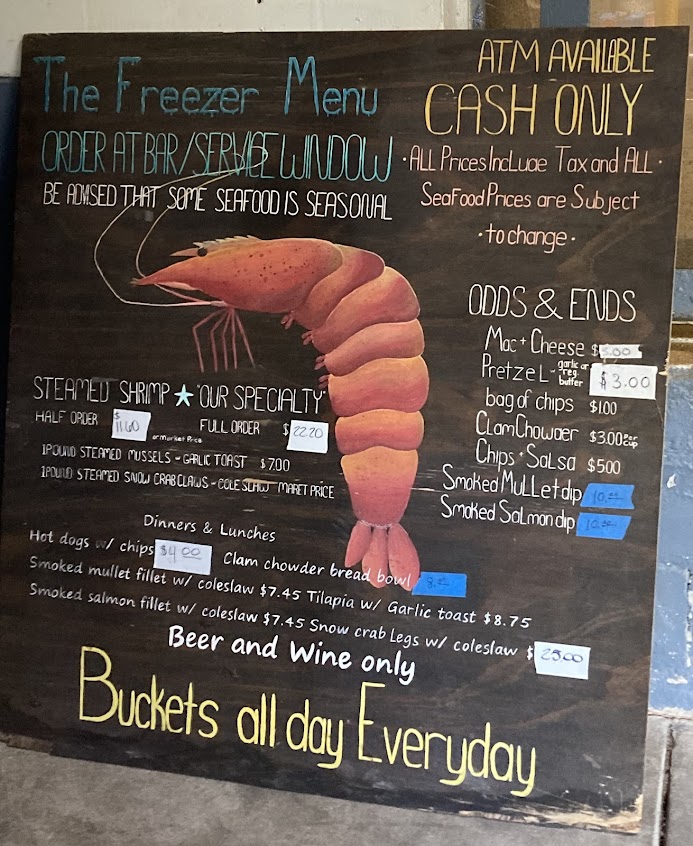 The Freezer Menu
ORDER AT BAR/SERVICE WINDOW
BE ADVISED THAT SOME SEAFOOD IS SEASONAL
ATM AVAILABLE
CASH ONLY
·ALL Prices Include Tax and ALL·
SeaFood Prices are Subject
·to change·
ODDS & ENDS
Mac + Cheese $5.00
Pretzel - garlic or reg. butter $3.00
bag of chips $1.00
Clam Chowder $3.00 per cup
Chips + Salsa $5.00
Smoked Mullet dip 10.00
Smoked Salmon dip 10.00
STEAMED SHRIMP ★ "OUR SPECIALTY"
HALF ORDER $11.60 FULL ORDER $22.20
or market Price
1 POUND STEAMED MUSSELS - GARLIC TOAST $7.00
1 POUND STEAMED SNOW CRAB CLAWS - COLE SLAW MARET PRICE
Dinners & Lunches
Hot dogs w/ chips $4.00 Clam chowder bread bowl 8.00
Smoked mullet fillet w/ coleslaw $7.45 Tilapia w/ Garlic toast $8.75
Smoked salmon fillet w/ coleslaw $7.45 Snow crab Legs w/ coleslaw $25.00
Beer and Wine only
Buckets all day Everyday